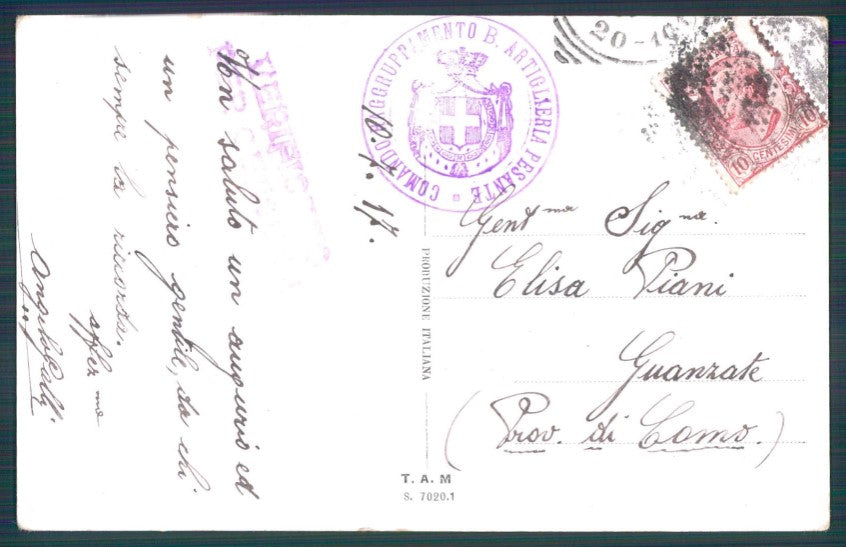 10. 7. 17.
Un saluto un augurio ed
un pensiero gentile, da chi
sempre la ricorda.
affez ma
VERIFICATO
COMANDO RAGGRUPPAMENTO B. ARTIGLIERIA PESANTE
20-10
10 CENTESIMI 10
Gent ma Sig na.
Elisa Piani
Guanzate
(Prov. di Como.)
PRODUZIONE ITALIANA
T. A. M
S. 7020.1